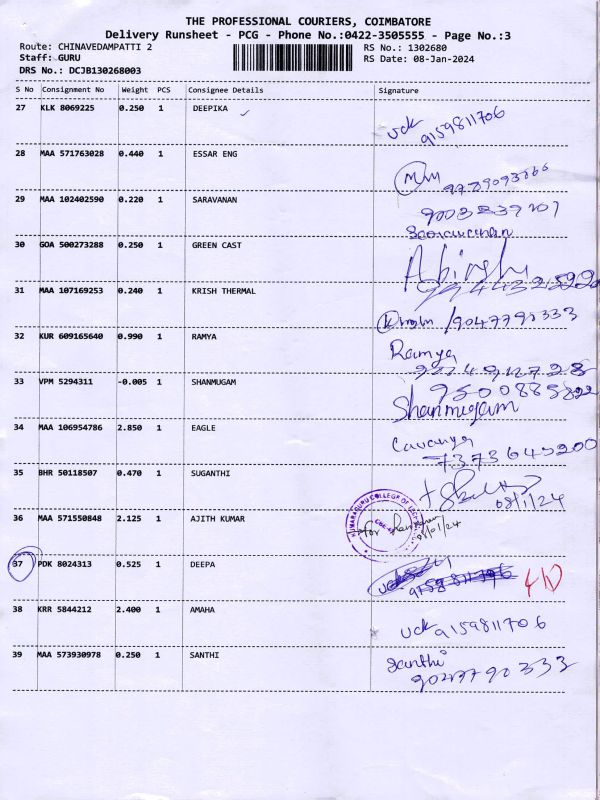 THE PROFESSIONAL COURIERS, COIMBATORE
Delivery Runsheet - PCG - Phone No.:0422-3505555 - Page No.:3
Route: CHINAVEDAMPATTI 2 RS No.: 1302680
Staff: GURU RS Date: 08-Jan-2024
DRS No.: DCJB130268003
S No Consignment No Weight PCS Consignee Details Signature
27 KLK 8069225 0.250 1 DEEPIKA
uck 9159811706
28 MAA 571763028 0.440 1 ESSAR ENG
29 MAA 102402590 0.220 1 SARAVANAN
Saravanan
30 GOA 500273288 0.250 1 GREEN CAST
31 MAA 107169253 0.240 1 KRISH THERMAL
9047790333
32 KUR 609165640 0.990 1 RAMYA
Ramya
33 VPM 5294311 -0.005 1 SHANMUGAM
Shanmugam
34 MAA 106954786 2.850 1 EAGLE
Lavanya
7373645200
35 BHR 50118507 0.470 1 SUGANTHI
08/1/24
36 MAA 571550848 2.125 1 AJITH KUMAR
KUMARAGURU COLLEGE OF
for
37 PDK 8024313 0.525 1 DEEPA
38 KRR 5844212 2.400 1 AMAHA
uck 9159811706
39 MAA 573930978 0.250 1 SANTHI
Santhi
9047790333